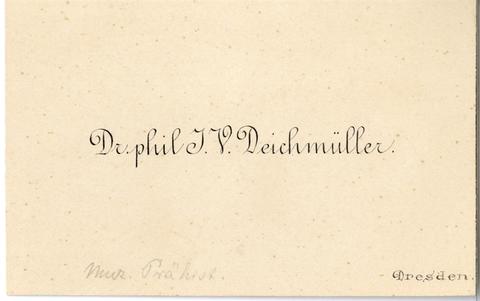 Dr. phil J. V. Deichmüller.
Muz. Prähist.
Dresden.